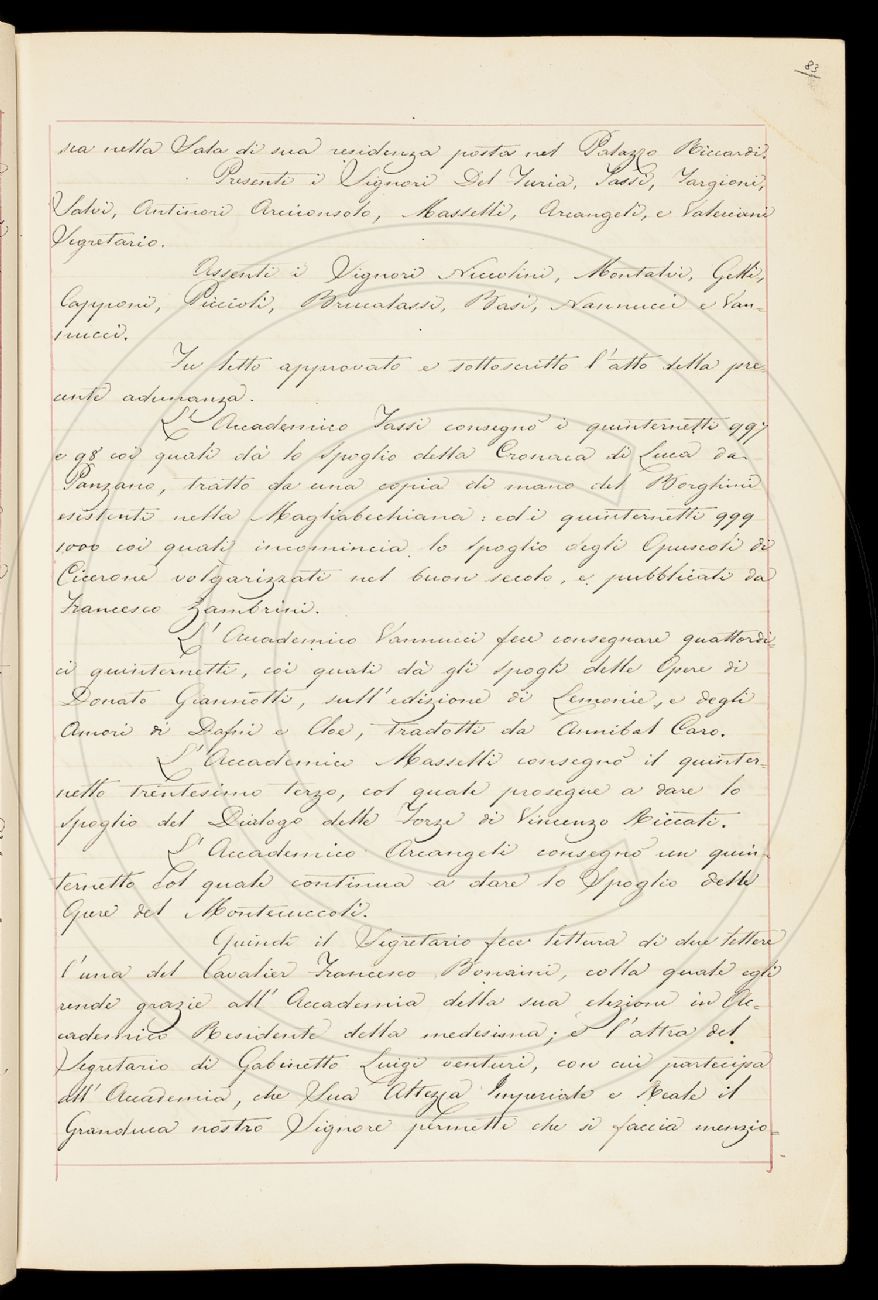 83
sca nella Sala di sua residenza posta nel Palazzo Riccardi.
Presenti i Signori Del Furia, Tassi, Targioni,
Salvi, Antinori Arciconsolo, Masselli, Arcangeli, e Valeriani
Segretario.
Assenti i Signori Niccolini, Montalvi, Gelli,
Capponi, Piccioli, Brucalassi, Basi, Nannucci e Van-
nucci.
Fu letto approvato e sottoscritto l'atto della pre-
cente adunanza.
L' Accademico Tassi consegnò i quinternetti 997
e 98 coi quali dà lo spoglio della Cronaca di Luca da
Panzano, tratto da una copia di mano del Borghini
esistente nella Magliabechiana: ed i quinternetti 999
1000 coi quali incomincia lo spoglio degli Opuscoli di
Cicerone volgarizzati nel buon secolo, e pubblicati da
Francesco Zambrini.
L' Accademico Vannucci fece consegnare quattordi-
ci quinternetti, coi quali dà gli spogli delle Opere di
Donato Giannotti, sull'edizione di Lemonie, e degli
Amori di Dafni e Cloe, tradotti da Annibal Caro.
L' Accademico Masselli consegnò il quinter-
netto trentesimo terzo, col quale prosegue a dare lo
spoglio del Dialogo delle Forze di Vincenzo Riccati.
L' Accademico Arcangeli consegnò un quin-
ternetto col quale continua a dare lo Spoglio delle
Opere del Montecuccoli.
Quindi il Segretario fece lettura di due lettere
l'una del Cavalier Francesco Bonaini, colla quale egli
rende grazie all' Accademia della sua elezione in Ac-
cademico Residente della medesima; e l'altra del
Segretario di Gabinetto Luigi Venturi, con cui partecipa
all' Accademia, che Sua Altezza Imperiale e Reale il
Granduca nostro Signore permette che si faccia menzio-